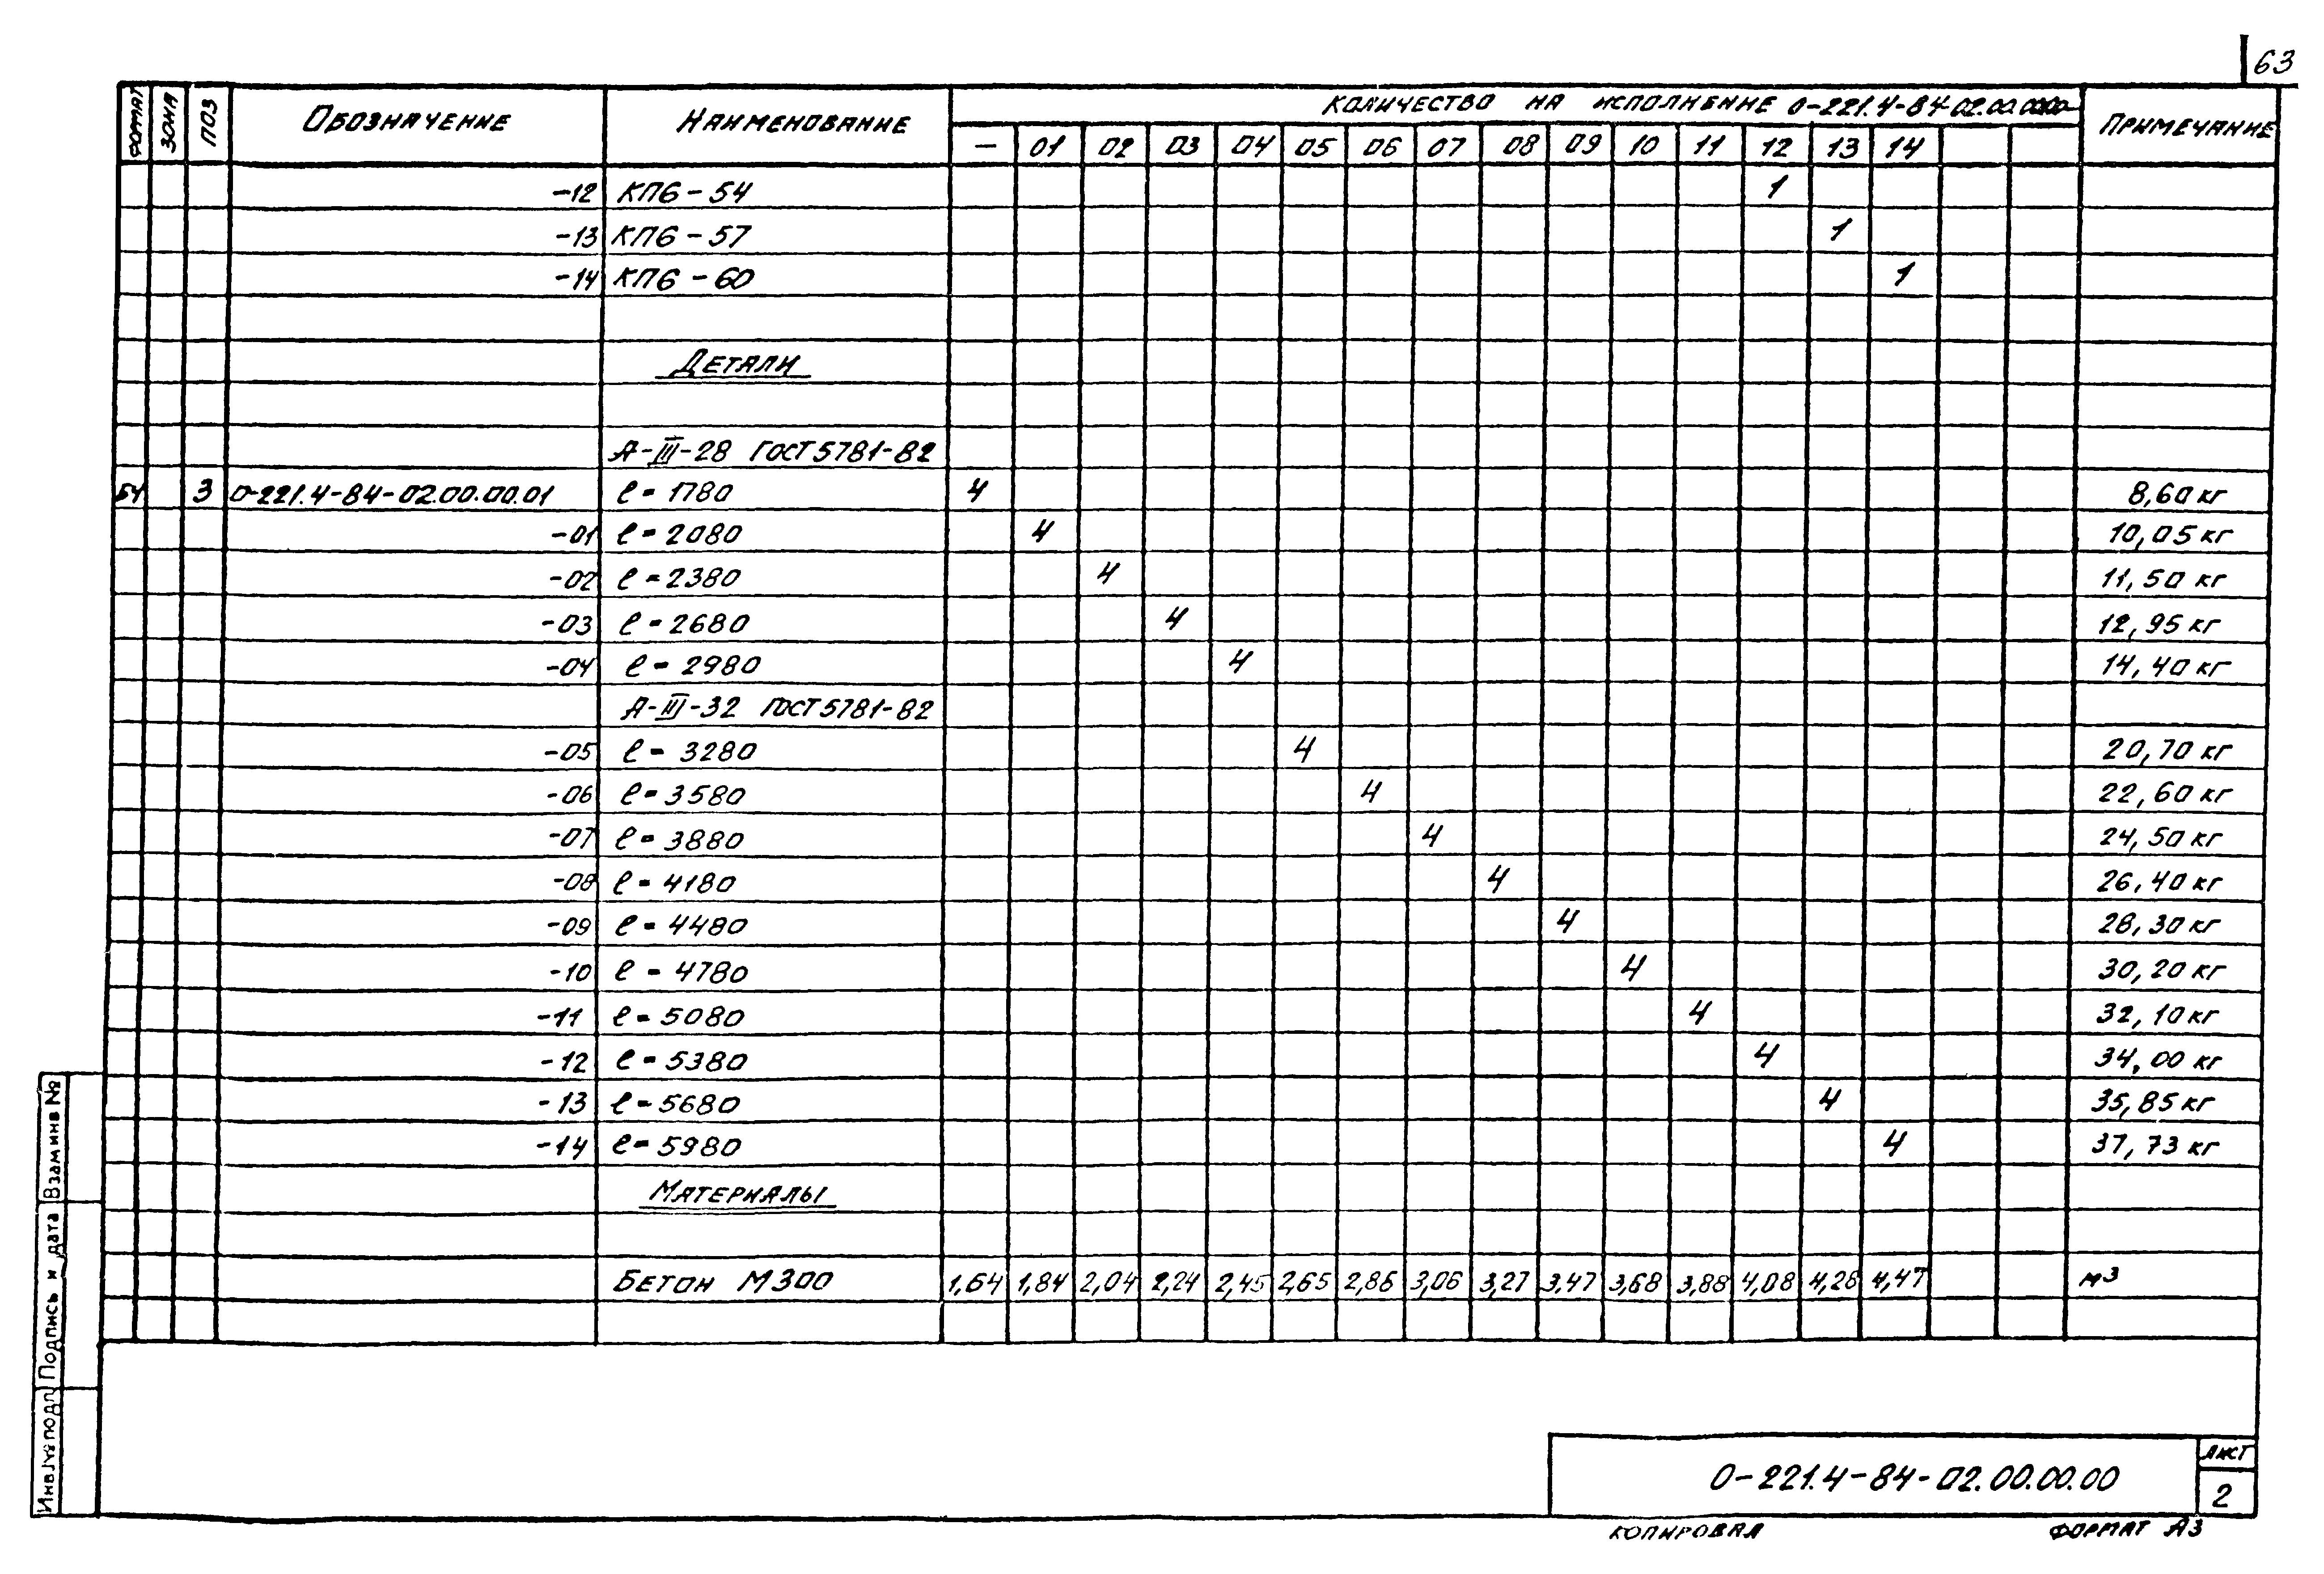 63
ФОРМАТ ЗОНА ПОЗ ОБОЗНАЧЕНИЕ НАИМЕНОВАНИЕ КОЛИЧЕСТВО НА ИСПОЛНЕНИЕ 0-221.4-84-02.00.00.00 ПРИМЕЧАНИЕ
— 01 02 03 04 05 06 07 08 09 10 11 12 13 14
-12 КП6-54 1
-13 КП6-57 1
-14 КП6-60 1
ДЕТАЛИ
А-III-28 ГОСТ 5781-82
БЧ 3 0-221.4-84-02.00.00.01 ℓ=1780 4 8,60 кг
-01 ℓ=2080 4 10,05 кг
-02 ℓ=2380 4 11,50 кг
-03 ℓ=2680 4 12,95 кг
-04 ℓ=2980 4 14,40 кг
А-III-32 ГОСТ 5781-82
-05 ℓ=3280 4 20,70 кг
-06 ℓ=3580 4 22,60 кг
-07 ℓ=3880 4 24,50 кг
-08 ℓ=4180 4 26,40 кг
-09 ℓ=4480 4 28,30 кг
-10 ℓ=4780 4 30,20 кг
-11 ℓ=5080 4 32,10 кг
-12 ℓ=5380 4 34,00 кг
-13 ℓ=5680 4 35,85 кг
-14 ℓ=5980 4 37,73 кг
МАТЕРИАЛЫ
БЕТОН М300 1,64 1,84 2,04 2,24 2,45 2,65 2,86 3,06 3,27 3,47 3,68 3,88 4,08 4,28 4,47 м3
Инв.№ подл. Подпись и дата Взам инв №
0-221.4-84-02.00.00.00
ЛИСТ
2
КОПИРОВАЛ ФОРМАТ А3